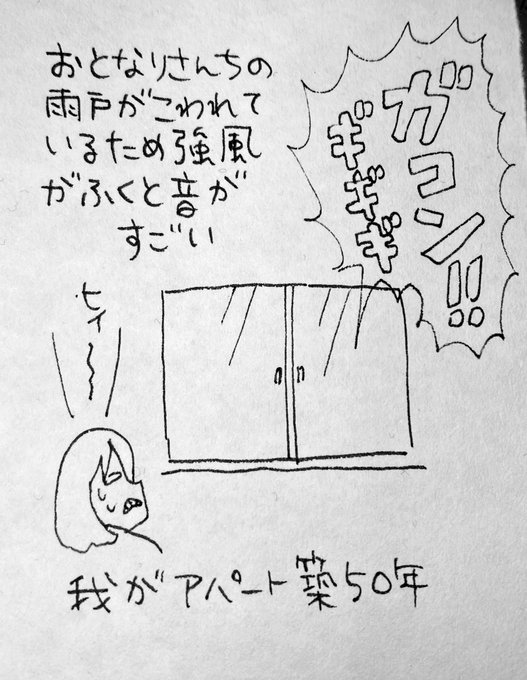 おとなりさんちの
雨戸がこわれて
いるため強風
がふくと音が
すごい
ガコン!!
ギギギ
ヒィ〜
我がアパート築50年